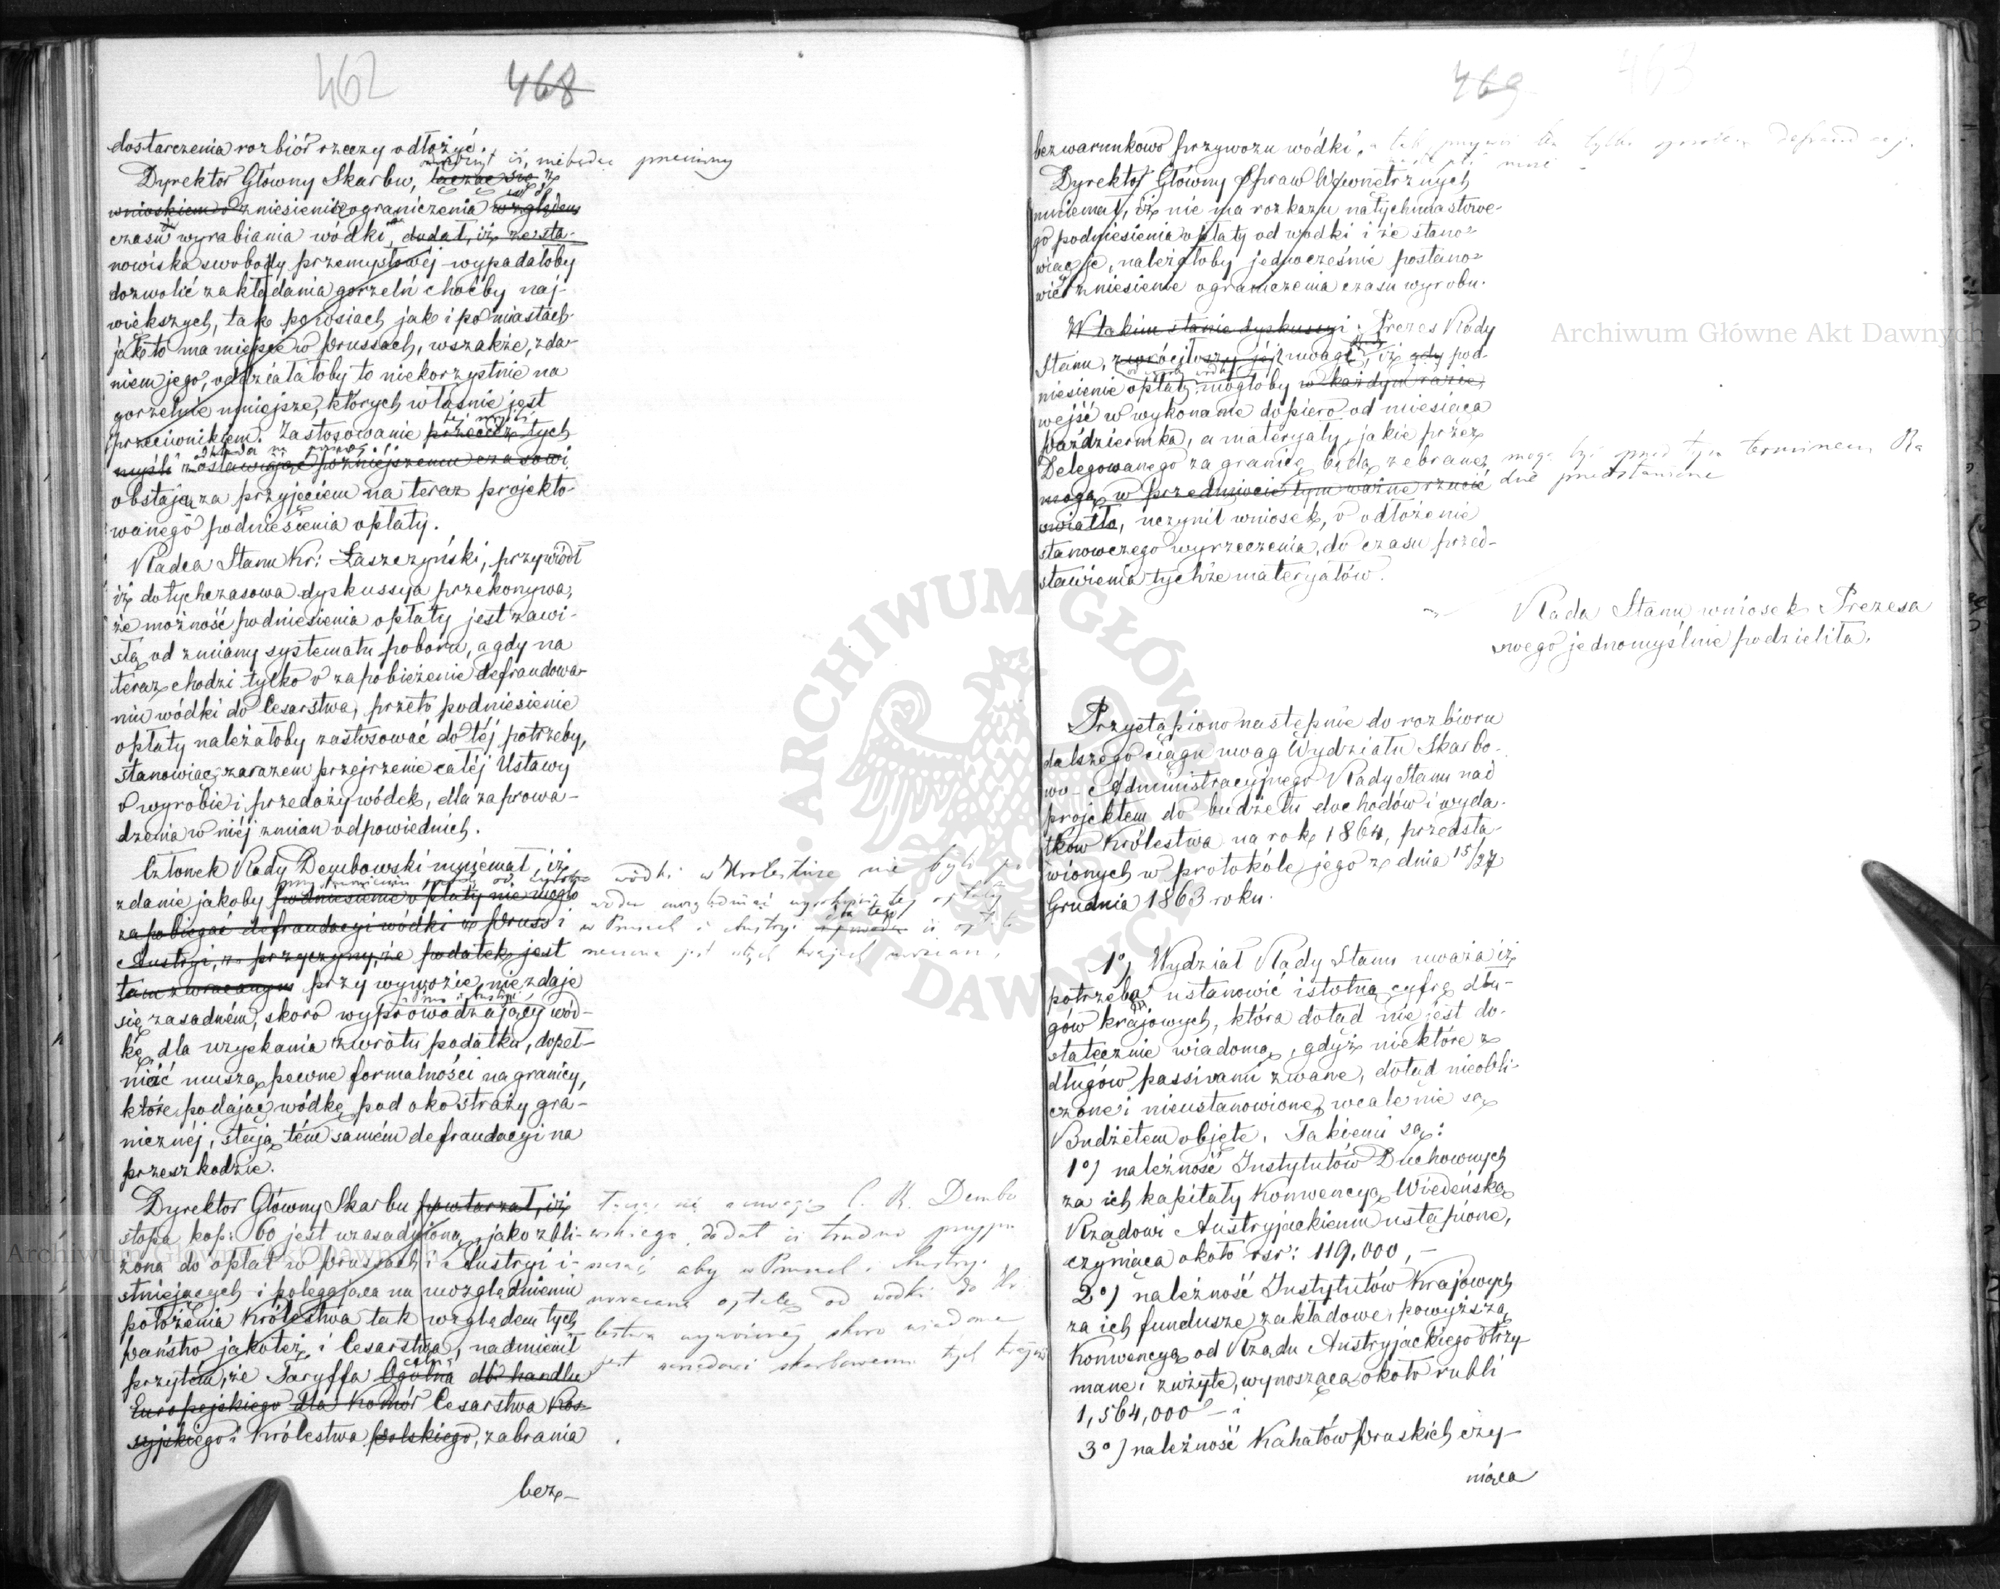 462 468
dostarczenia rozbiór rzeczy odłożyć.
iż, niebędąc przeciwny
Dyrektor Główny Skarbu, łącząc się z
wnioskiem o zniesienie ograniczenia względem
czasu wyrabiania wódki, dodał, iż ze sta-
nowiska swobody przemysłowéj wypadałoby
dozwolić zakładania gorzelń choćby naj-
większych, tak po wsiach jak i po miastach
jak to ma miejsce w Prussach, wszakże, zda-
niem jego, oddziałałoby to niekorzystnie na
gorzelnie mniejsze, których właśnie jest
przeciwnikiem. Zastosowanie przeto tych
myśli zostawiając późniejszemu czasowi
obstaje za przyjęciem na teraz projekto-
wanego podniesienia opłaty.
Radca Stanu Kr: Łaszczyński, przywiódł
iż dotychczasowa dyskussya przekonywa,
że możność podniesienia opłaty jest zawi-
słą od zmiany systematu poboru, a gdy na
teraz chodzi tylko o zapobieżenie defraudowa-
niu wódki do Cesarstwa, przeto podniesienie
opłaty należałoby zastosować do téj potrzeby,
stanowiąc zarazem przejrzenie całéj Ustawy
o wyrobie i przedaży wódek, dla zaprowa-
dzenia w niéj zmian odpowiednich.
Członek Rady Dembowski mniemał, iż
zdanie jakoby podniesienie opłaty nie mogło
zapobiegać defraudacyi wódki z Pruss i
Austryi, z przyczyny, że podatek jest
tam zwracanym przy wywozie, nie zdaje
się zasadném, skoro wyprowadzający wód-
kę, dla uzyskania zwrotu podatku, dopeł-
niać muszą pewne formalności na granicy,
które podając wódkę pod oko straży gra-
nicznéj, stają tém samém defraudacyi na
przeszkodzie.
wódki w Królestwie nie był po
w Prusach i Austryi
jest w tych krajach
Dyrektor Główny Skarbu powtarzał, iż
stopa kop: 60 jest uzasadnioną, jako zbli-
żona do opłat w Prussach i Austryi i-
stniejących i polegająca na uwzględnieniu
położenia Królestwa tak względem tych
państw jakoteż i Cesarstwa, nadmienił
przytém, że Taryffa Ogólna do handlu
Europejskiego dla Komór Cesarstwa Ros-
syjskiego i Królestwa Polskiego, zabrania
uwagę C. R. Dembo
wskiego dodał iż trudno przypu
aby w Prusach i Austryi
opłatę od wódki do Kr
lestwa skoro wiadome
jest skarbowemu tych krajów
bez-
469 463
bezwarunkowo przywozu wódki,
Dyrektor Główny Spraw Wewnętrznych
mniemał, iż nie ma rozkazu natychmiastowe-
go podniesienia opłaty od wódki i że stano-
wiąc je, należałoby jednocześnie postano-
wić zniesienie ograniczenia czasu wyrobu.
W takim stanie dyskussyi Prezes Rady
Stanu, zwróciwszy jéj uwagę, iż gdy pod-
niesienie opłaty mogłoby w każdym razie,
wejść w wykonanie dopiero od miesiąca
Października, a materyały, jakie przez
Delegowanego za granicę będą zebrane,
mogą być przed tym terminem Ra
dzie przedstawione
mogą w przedmiocie tym ważne rzucić
światło, uczynił wniosek, o odłożenie
stanowczego wyrzeczenia, do czasu przed-
stawienia tychże materyałów.
Rada Stanu wniosek Prezesa
swego jednomyślnie podzieliła.
Przystąpiono następnie do rozbioru
dalszego ciągu uwag Wydziału Skarbo-
wo-Administracyjnego Rady Stanu nad
projektem do budżetu dochodów i wyda-
tków Królestwa na rok 1864, przedsta-
wionych w protokóle jego z dnia 15/27
Grudnia 1863 roku.
1o) Wydział Rady Stanu uważa iż
potrzeba ustanowić istotną cyfrę dłu-
gów krajowych, która dotąd nie jest do-
statecznie wiadomą, gdyż niektóre z
długów passivami zwane, dotąd nieobli-
czone i nieustanowione, wcale nie są
Budżetem objęte. Takiemi są:
1o) należność Instytutów Duchownych
za ich kapitały Konwencyą Wiedeńską
Rządowi Austryjackiemu ustąpione,
czyniąca około rsr: 119,000,-
2o) należność Instytutów Krajowych
za ich fundusze zakładowe, powyższą
Konwencyą od Rządu Austryjackiego otrzy-
mane i zużyte, wynosząca około rubli
1,564,000 - i
3o) należność Kahałów Pruskich czy-
niąca
ARCHIWUM GŁÓWNE AKT DAWNYCH
Archiwum Główne Akt Dawnych
Archiwum Główne Akt Dawnych